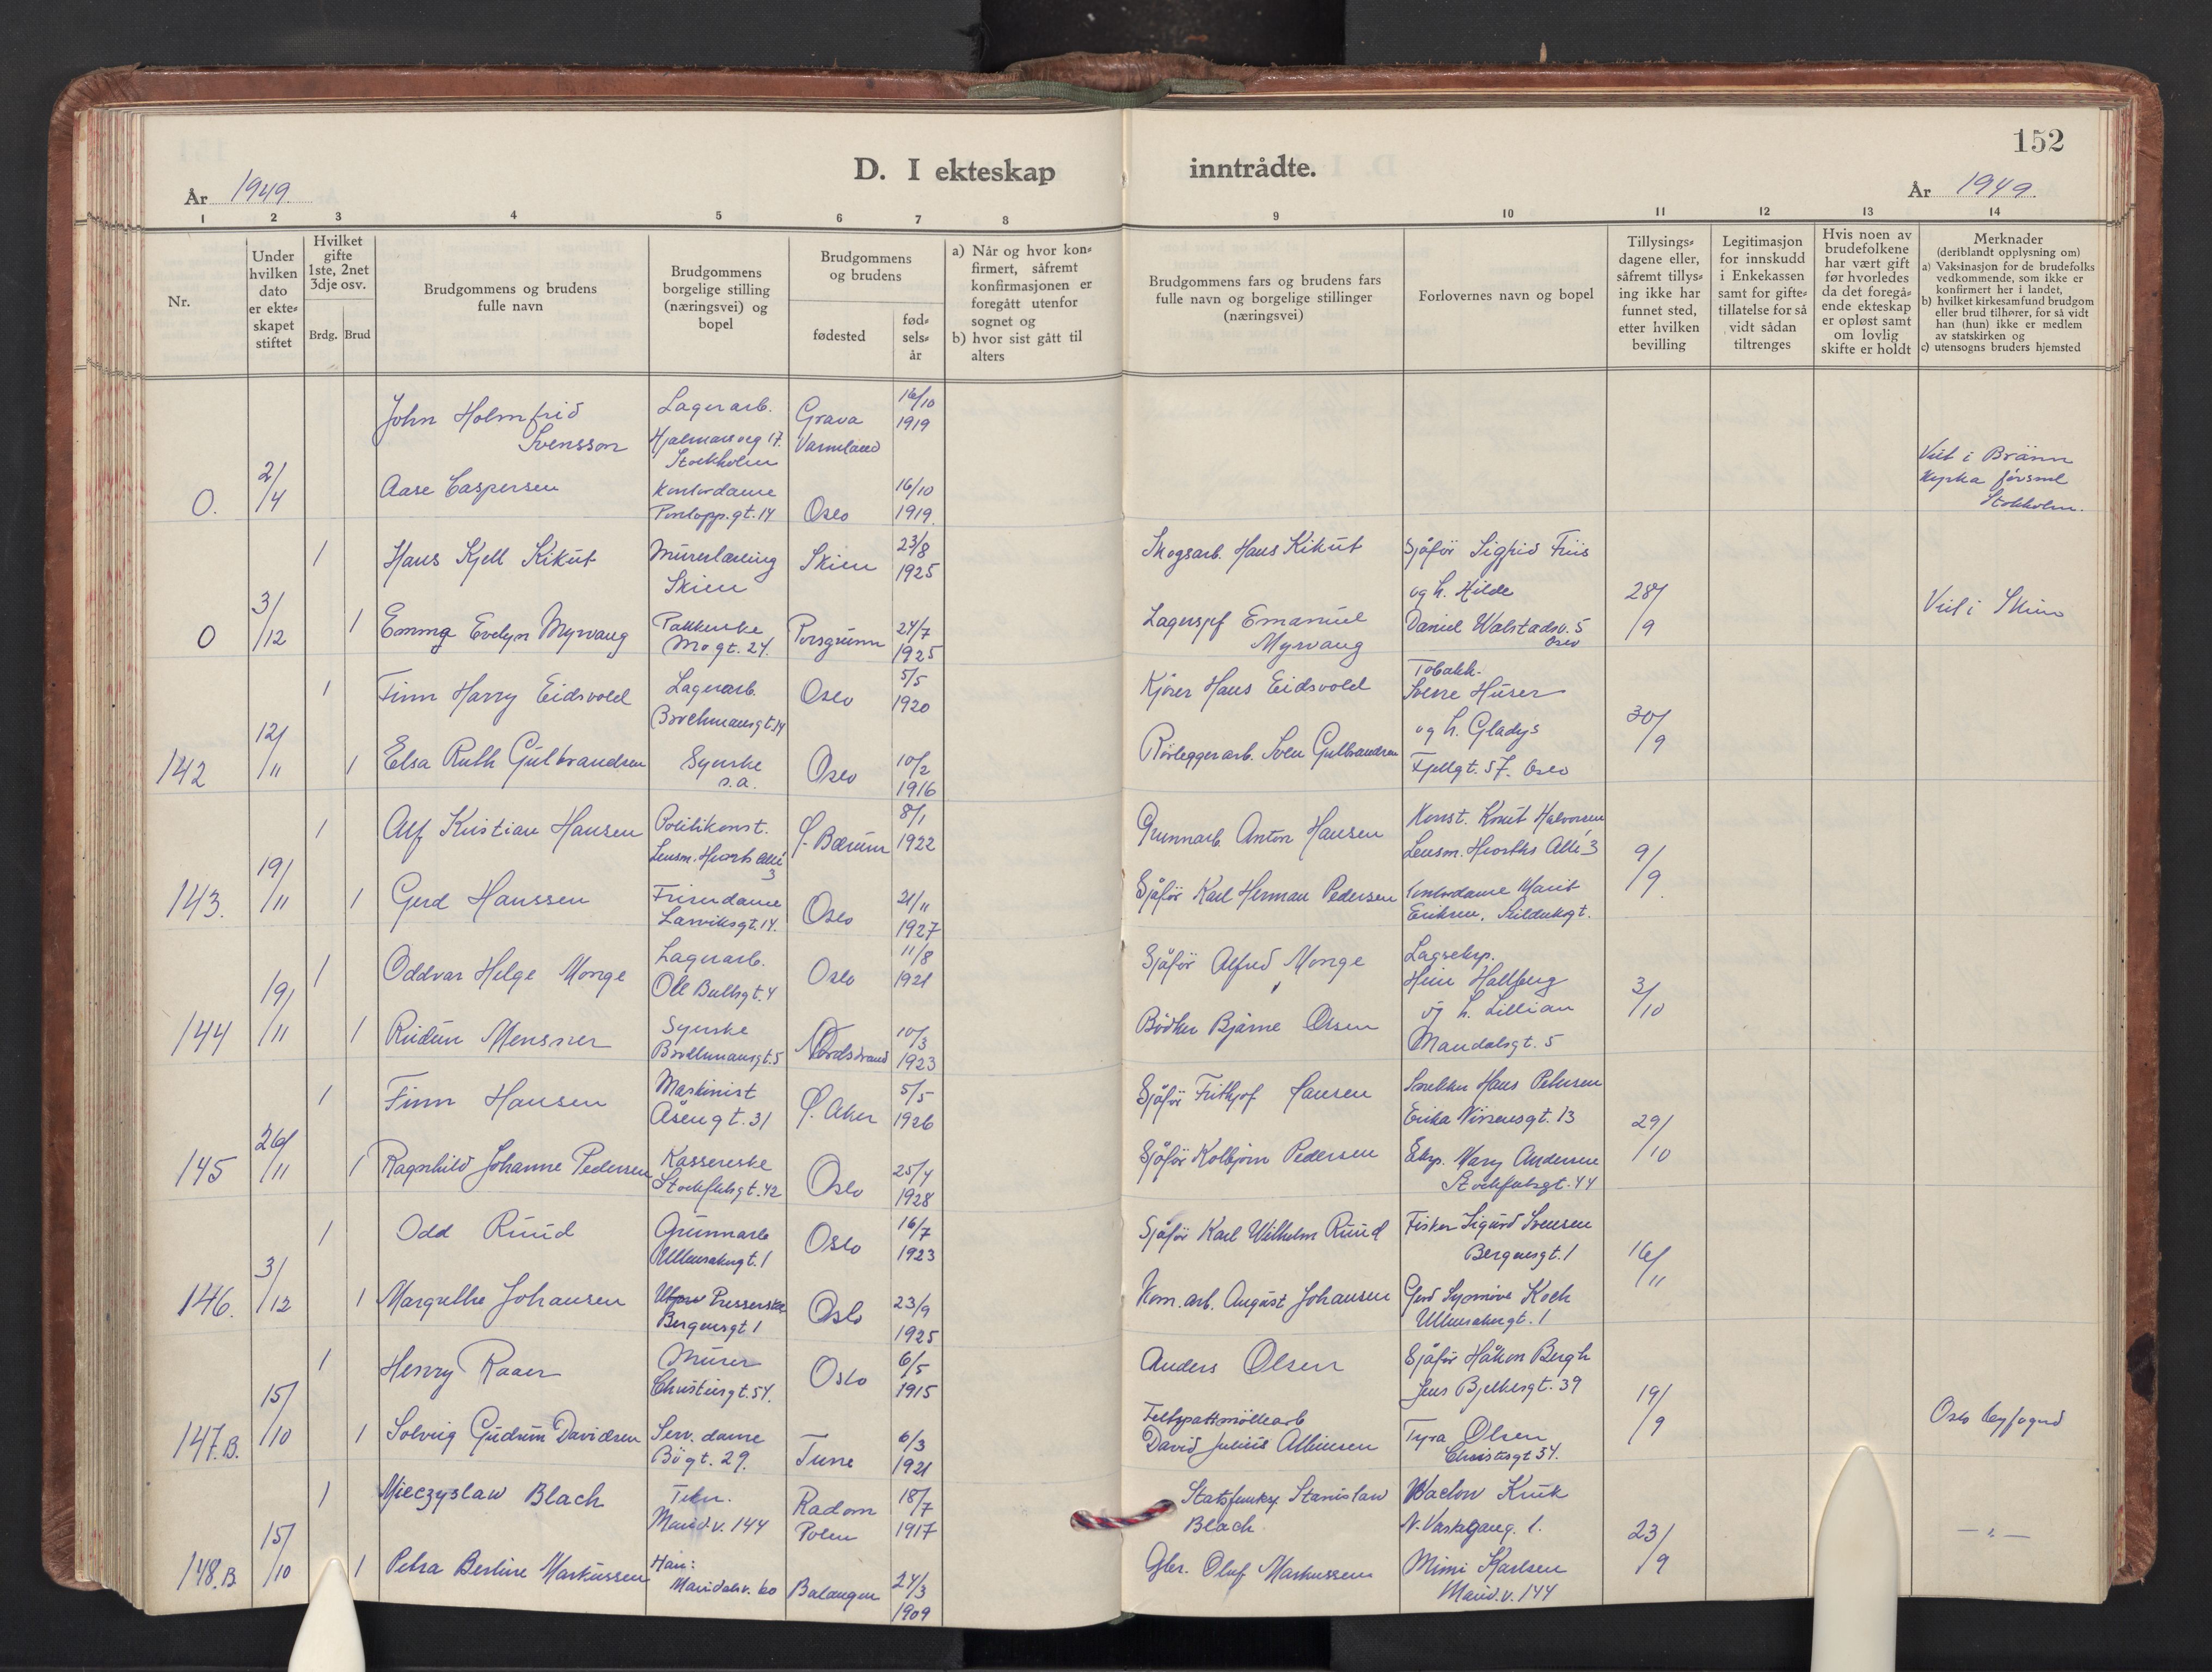 152
D. I ekteskap inntrådte.
År 1949.
År 1949.
1 2 3 4 5 6 7 8 9 10 11 12 13 14
Nr.
Under hvilken dato er ekteskapet stiftet
Hvilket gifte 1ste, 2net 3dje osv.
Brdg. Brud
Brudgommens og brudens fulle navn
Brudgommens borgelige stilling (næringsvei) og bopel
Brudgommens og brudens
fødested
fødselsår
a) Når og hvor konfirmert, såfremt konfirmasjonen er foregått utenfor sognet og
b) hvor sist gått til alters
Brudgommens fars og brudens fars fulle navn og borgelige stillinger (næringsvei)
Forlovernes navn og bopel
Tillysingsdagene eller, såfremt tillysing ikke har funnet sted, etter hvilken bevilling
Legitimasjon for innskudd i Enkekassen samt for giftetillatelse for så vidt sådan tiltrenges
Hvis noen av brudefolkene har vært gift før hvorledes da det foregående ekteskap er opløst samt om lovlig skifte er holdt
Merknader
(deriblandt opplysning om)
a) Vaksinasjon for de brudefolks vedkommende, som ikke er konfirmert her i landet,
b) hvilket kirkesamfund brudgom eller brud tilhører, for så vidt han (hun) ikke er medlem av statskirken og
c) utensogns bruders hjemsted
John Holmfrid Svensson Lagerarb. Hjalmarsveg 17. Stockholm Grava Värmland 16/10 1919
O. 2/4 Aase Caspersen Kontordame Pontopp.gt. 14 Oslo 16/10 1919.
Viet i Bränn kyrka försml Stokholm.
1 Hans Kjell Kikut Murerlærling Skien Skien 23/8 1925 Skogsarb. Hans Kikut Sjåfør Sigfrid Friis
O 3/12 1 Emma Evelyn Myrvang Pakkerske Mogt. 24. Porsgrunn 24/7 1925 Lagersjef Emanuel Myrvang og h. Hilde Daniel Walstadsv. 5 Oslo 28/9 Viet i Skien
1 Finn Harry Eidsvold Lagerarb. Borchmansgt 14 Oslo 5/5 1920 Kjører Hans Eidsvold Tobakk. Sverre Huser
142 12/11 1 Elsa Ruth Gulbrandsen Syerske s.a. Oslo 10/2 1916 Rørleggerarb. Sven Gulbrandsen og h. Gladys Fjellgt. 57. Oslo 30/9
1 Alf Kristian Hansen Politikonst. Lensm. Hiorts Allé 3 Ø. Bærum 8/1 1922 Grunnarb. Anton Hansen Konst. Knut Halvorsen Lensm. Hiorths Allé 3
143. 19/11 1 Gerd Hanssen Frisrdame Larviksgt. 14. Oslo 21/11 1927 Sjåfør Karl Herman Pedersen Kontordame Marit Eriksen, 9/9.
1 Oddvar Helge Monge Lagerarb. Ole Bullsgt. 4 Oslo 11/8 1921 Sjåfør Alfred Monge Lageeksp. Heini Hallberg
144 19/11 1 Rudun Mensner Syerske Borchmansgt. 5 Nordstrand 10/3 1923 Bødker Bjarne Olsen og h. Lillian Mandalsgt. 5 3/10
1 Finn Hansen Maskinist Åsengt. 31 Ø. Aker 5/5 1926 Sjåfør Fritjof Hansen Snekker Hans Petersen Erika Nissensgt. 13
145 26/11 1 Ragnhild Johanne Pedersen Kassererske Stockflethsgt. 42 Oslo 25/4 1928 Sjåfør Kolbjørn Pedersen Eksp. Mary Andersen Stockflethsgt. 44 29/10
1 Odd Ruud Grunnarb Ullensakergt. 1 Oslo 16/7 1923 Sjåfør Karl Wilhelm Ruud Fisker Sigurd Svensen Bergensgt. 1
146. 3/12 1 Margrethe Johansen Presserske Bergensgt 1 Oslo 23/9 1925 Kom. arb. August Johansen Gerd Synnøve Koch Ullensakergt. 1 16/11
1 Henry Raaer Murer Christiesgt. 54. Oslo 6/5 1915 Anders Olsen Sjåfør Håkon Bergh Jens Bjelkesgt. 39
147.B. 15/10 1 Solveig Gudrun Davidsen Serv. dame Bögt. 29. Tune 6/3 1921 Feltspattmøllearb David Julius Albinsen Tyra Olsen Christiesgt 54. 19/9 Oslo byfogd
1 Mieczyslaw Blach Tekn. Marid.v. 144 Radom Polen 18/7 1917 Statsfunksj. Stanislaw Blach Waclow Kruk N. Vaskegang. 1.
148.B 15/10 1 Petra Berline Markussen Han: Maridalsv. 60 Balangen 24/3 1909 Gbr. Oluf Markussen Mimi Karlsen Marid.v. 144 23/9 — " —